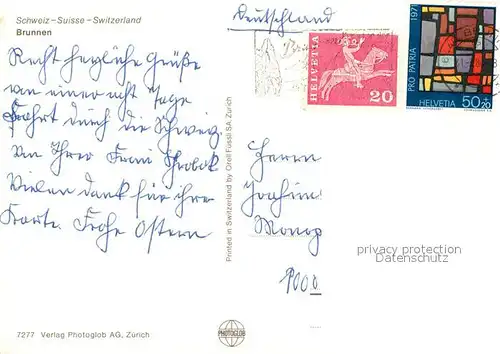 Schweiz-Suisse-Switzerland
Brunnen
Recht herzliche Grüße
von einer acht Tage
Fahrt durch die Schweiz.
Von Ihrer Frau
Vielen dank für ihre
Karte. Frohe Ostern
Printed in Switzerland by Orell Füssli SA, Zürich
7277 Verlag Photoglob AG, Zürich
PHOTOGLOB
Deutschland
HELVETIA
20
1971
PRO PATRIA
HELVETIA 50+20
Herrn
Joachim
privacy protection